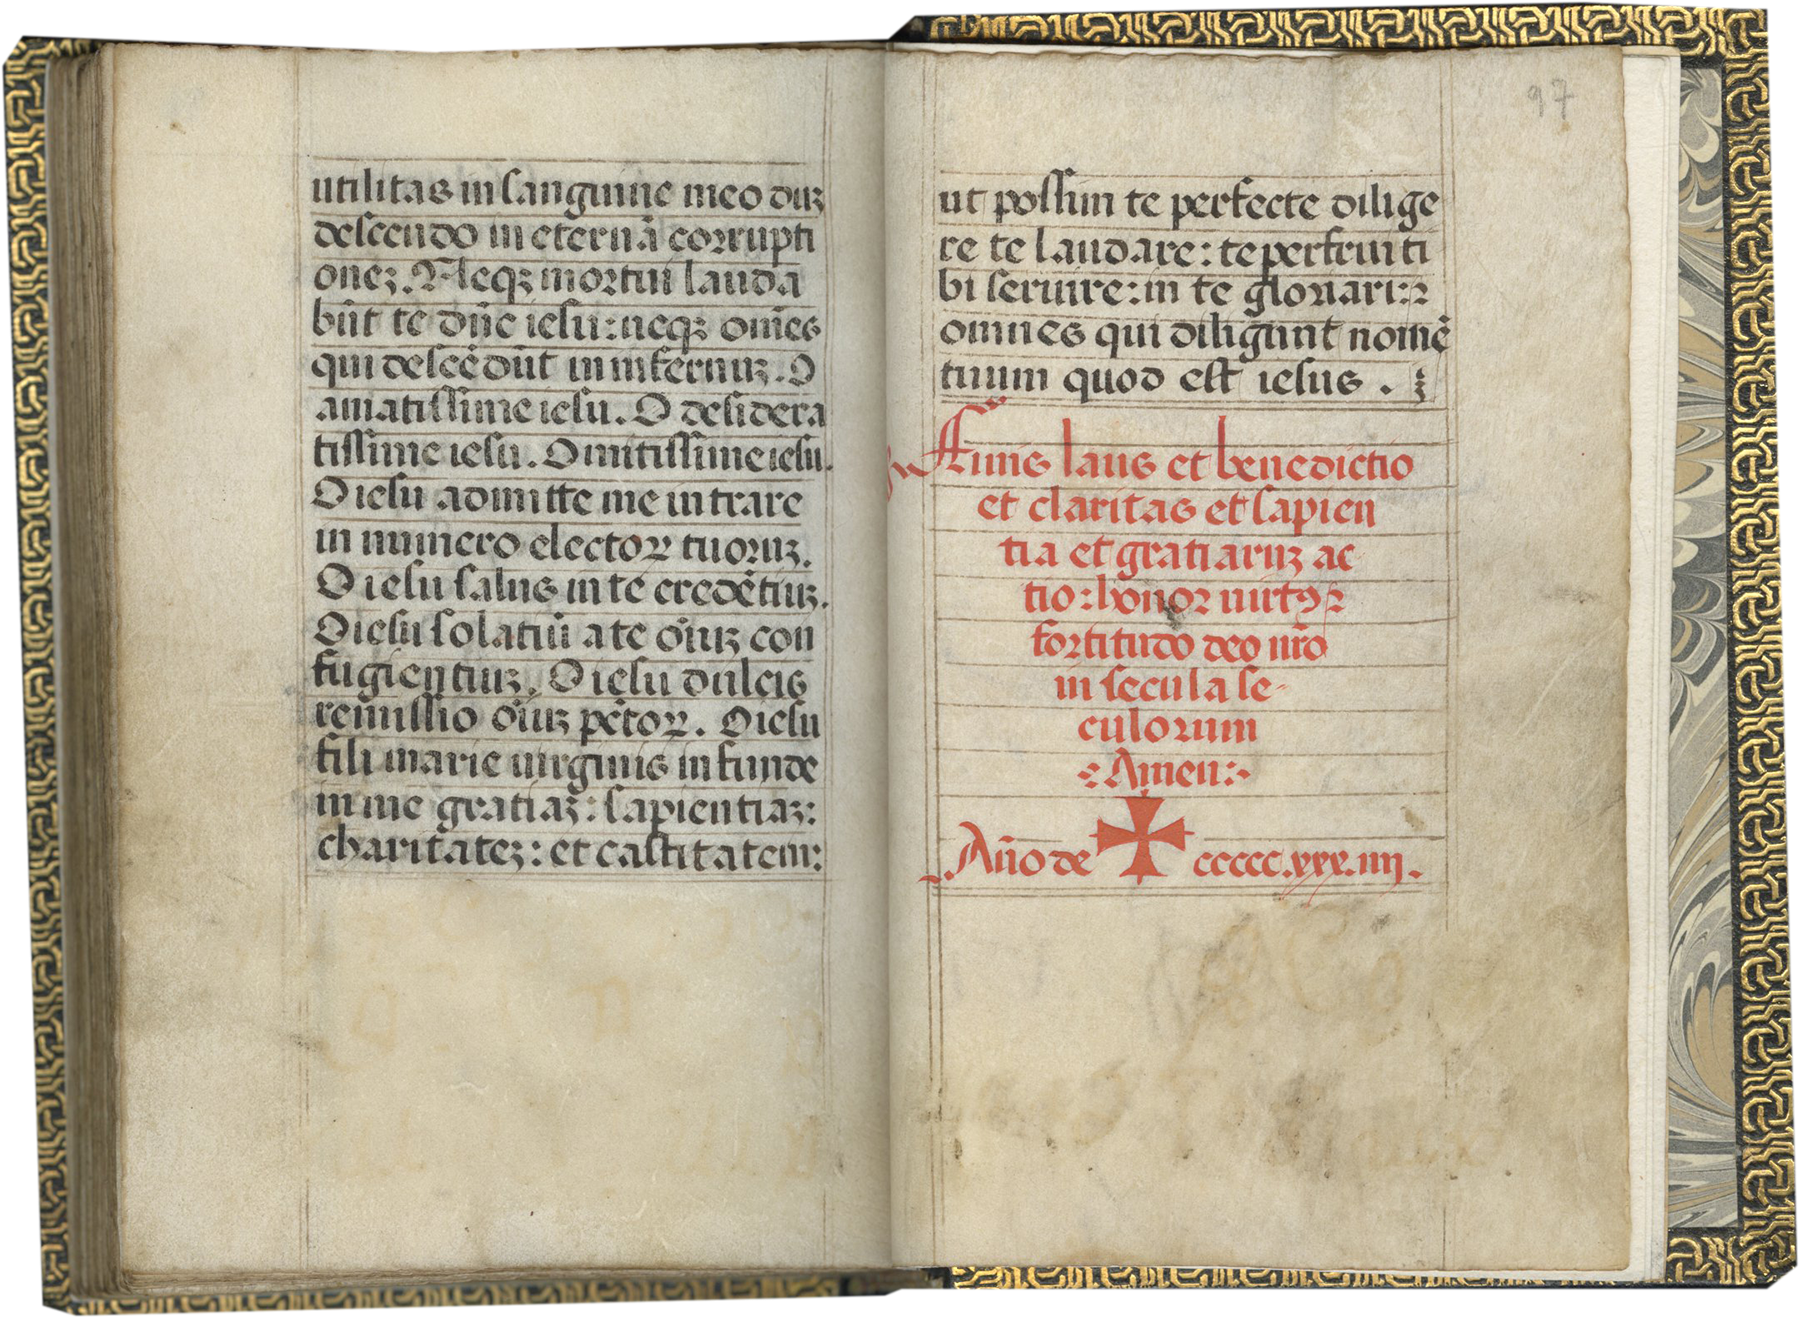 utilitas in sanguine meo duꝫ
descendo in eternã corrupti
oneꝫ. Neqꝫ mortui lauda
bũt te dñe iesu: neqꝫ om̃es
qui descẽdũt in infernuꝫ. O
amatissime iesu. O desidera
tissime iesu. O mitissime iesu.
O iesu admitte me intrare
in numero electoꝝ tuoruꝫ.
O iesu salus in te credẽtiuꝫ.
O iesu solatiũ a te oĩuꝫ con
fugientiuꝫ. O iesu dulcis
remissio oĩuꝫ pẽtoꝝ. O iesu
fili marie uirginis infunde
in me gratiaꝫ: sapientiaꝫ:
charitateꝫ: et castitatem:
97
ut possim te perfecte dilige
re te laudare: te perfrui ti
bi seruire: in te gloriari: ⁊
omnes qui diligunt nomẽ
tuum quod est iesus.
Finis laus et benedictio
et claritas et sapien
tia et gratiaruꝫ ac
tio: honor uirtꝰ ⁊
fortitudo deo nr̃o
in secula se-
culorum
Amen:
Año de ccccc.xxx.iiij.